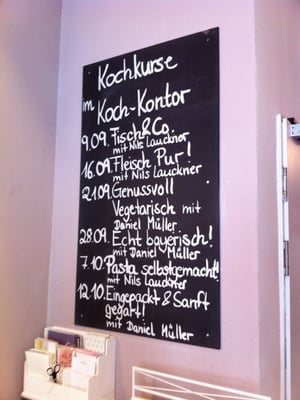 Kochkurse
im Koch-Kontor
9.09. Fisch & Co.
mit Nils Lauckner
16.09. Fleisch Pur!
mit Nils Lauckner
21.09. Genussvoll
Vegetarisch mit
Daniel Müller
28.09. Echt bayerisch!
mit Daniel Müller
7.10. Pasta selbstgemacht!
mit Nils Lauckner
12.10. Eingepackt & Sanft
gegart!
mit Daniel Müller